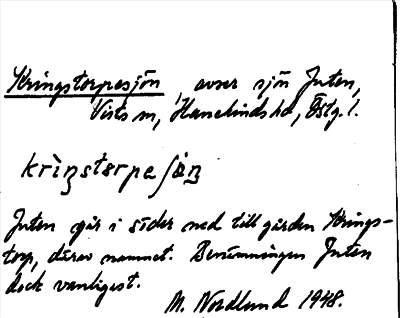 Kringstorpesjön, avser sjön Juten,
Vists sn, Hanekinds hd, Östg. l.
krìŋstɵrpeʃøn
Juten går i söder ned till gården Krings-
torp, därav namnet. Benämningen Juten
dock vanligast.
M. Nordlund 1948.